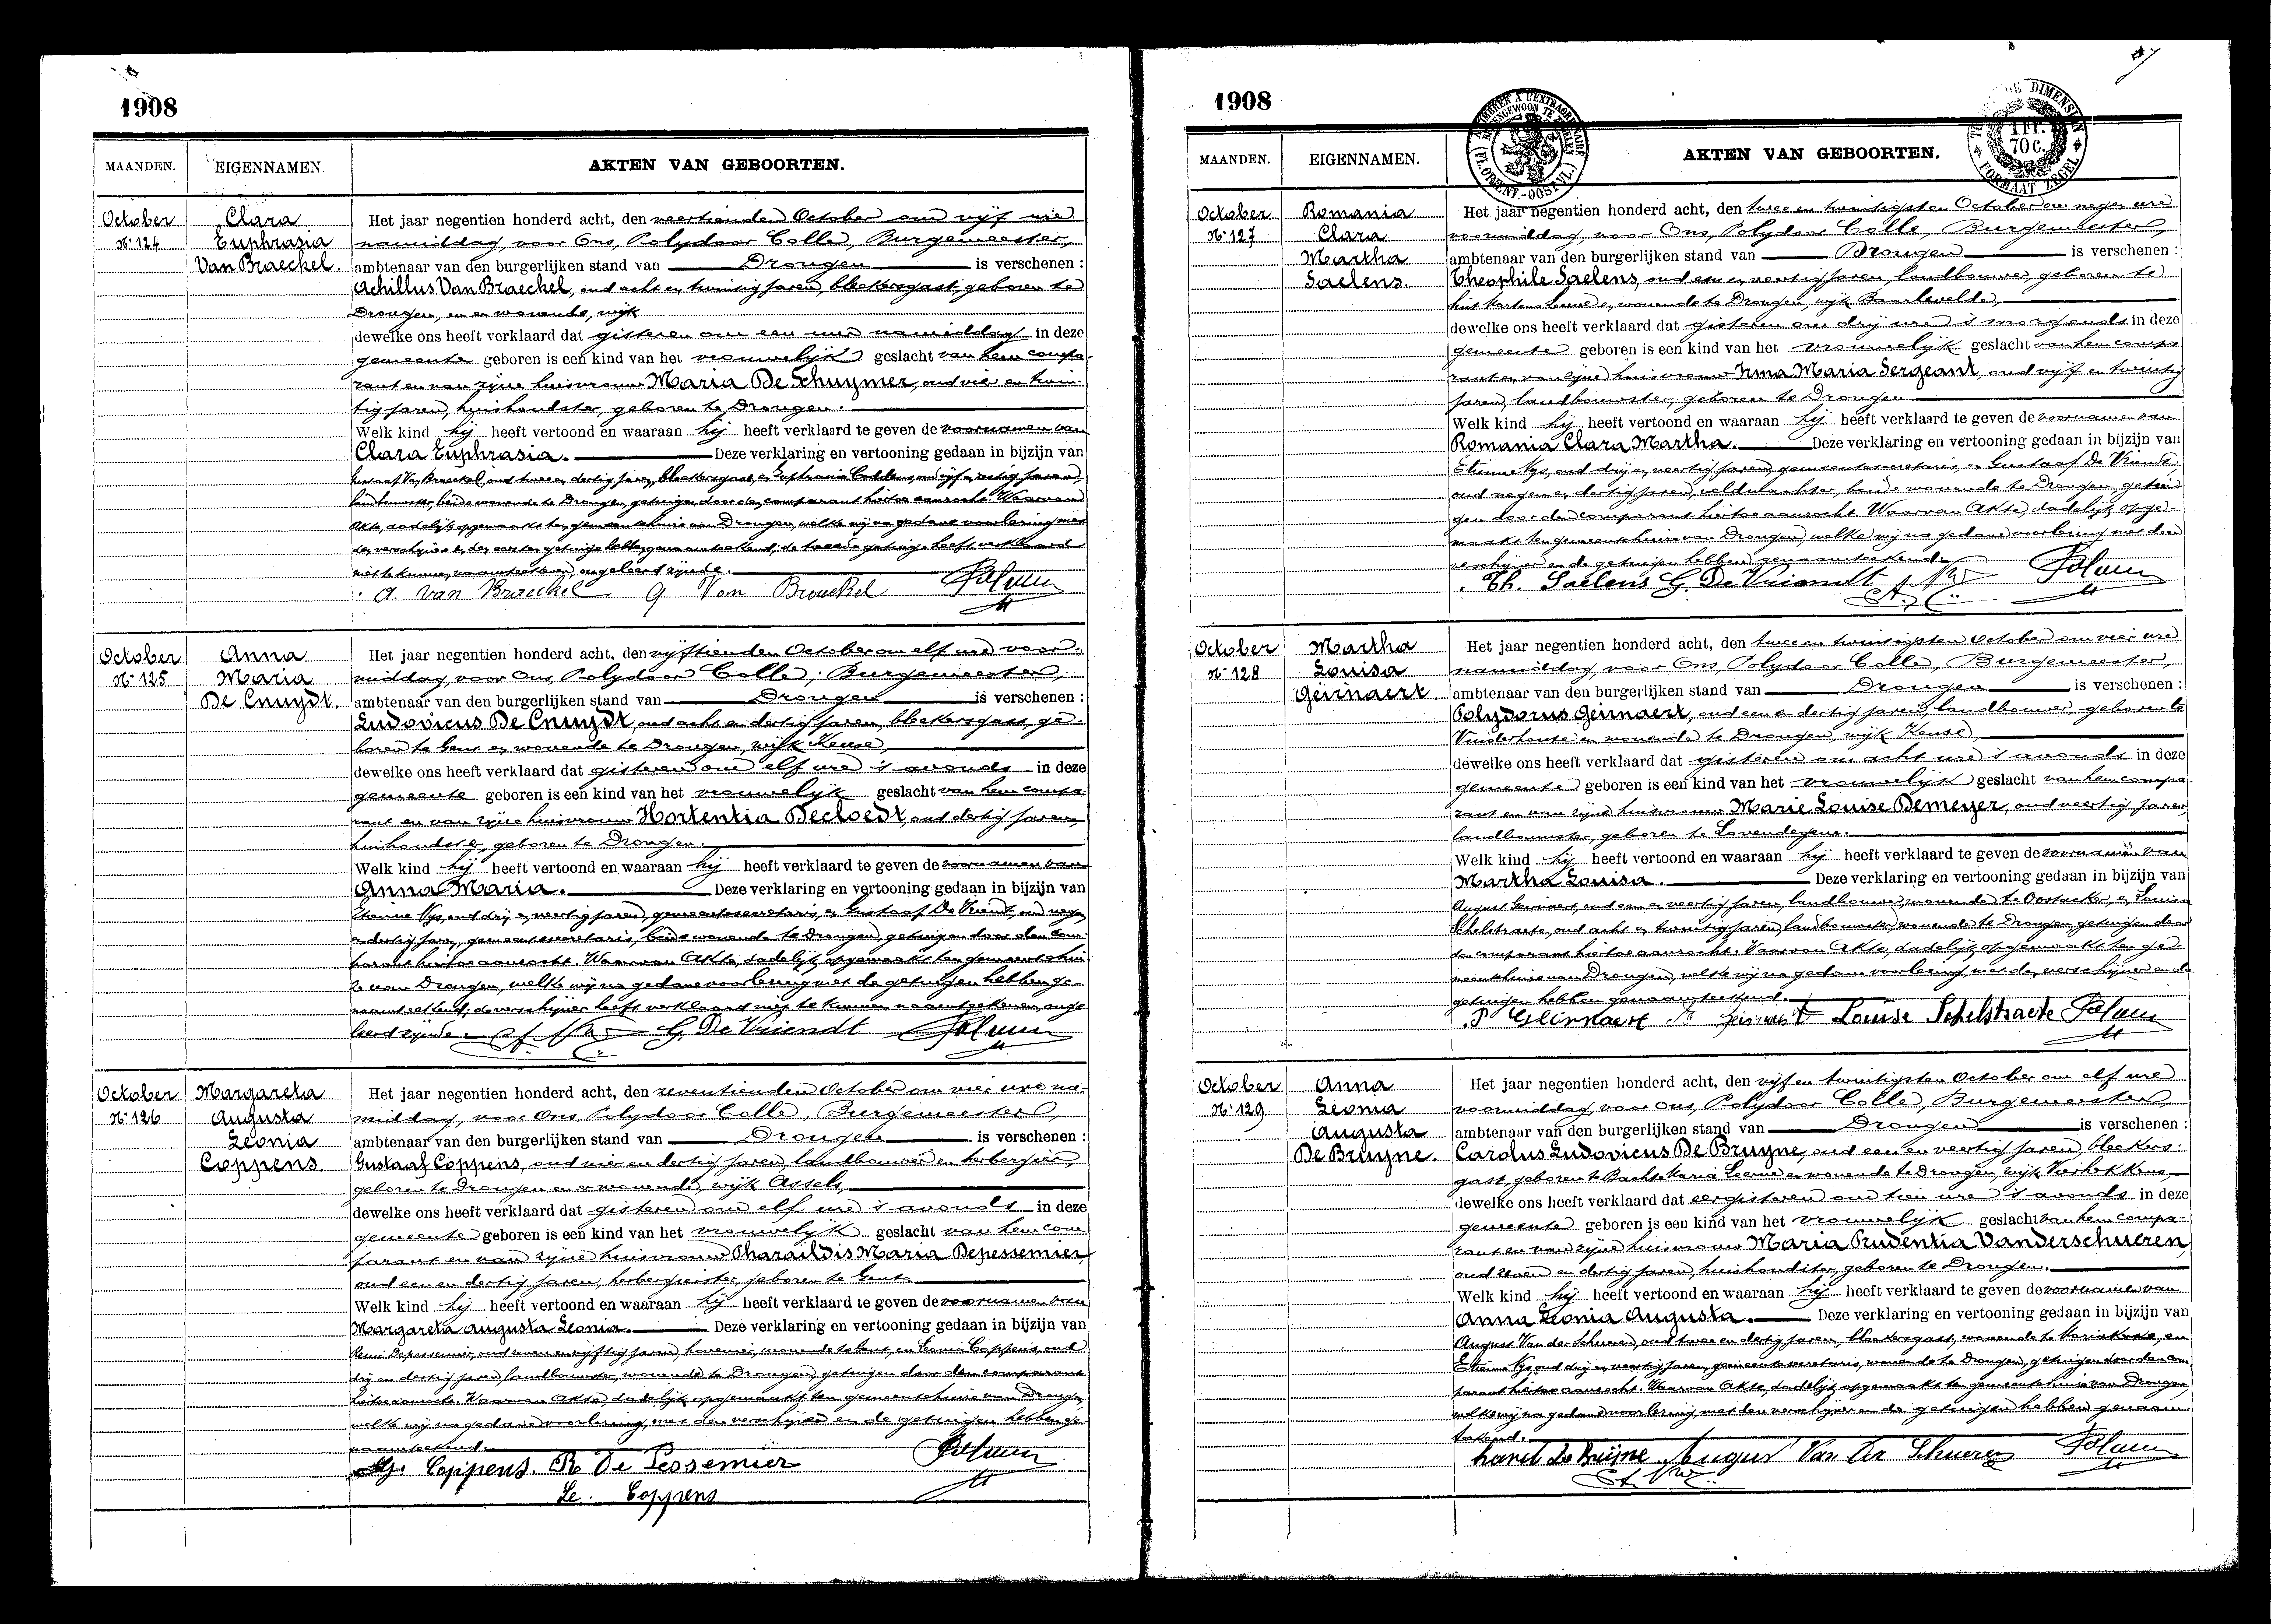 1908
MAANDEN.
EIGENNAMEN.
AKTEN VAN GEBOORTEN.
October
N. 124
Clara
Euphrasia
Van Braeckel.
Het jaar negentien honderd acht, den veertienden October om vijf ure
namiddag, voor Ons, Polydoor Colle, Burgemeester,
ambtenaar van den burgerlijken stand van Drongen is verschenen :
Achillus Van Braeckel, oud acht en twintig jaren, bleekersgast, geboren te
Drongen, en er wonende, wijk
dewelke ons heeft verklaard dat gisteren om een ure namiddag in deze
gemeente geboren is een kind van het vrouwelijk geslacht van hem compa-
rant en van zijne huisvrouw Maria De Schuymer, oud vier en twin-
tig jaren, huishoudster, geboren te Drongen.
Welk kind hij heeft vertoond en waaraan hij heeft verklaard te geven de voornamen van
Clara Euphrasia. Deze verklaring en vertooning gedaan in bijzijn van
Gustaaf Van Braeckel, oud twee en dertig jaren, bleekersgast, en Euphrasia oud vijf en zestig jaren,
landbouwster, beide wonende te Drongen, getuigen door den comparant hiertoe aanzocht. Waarvan
Akte, dadelijk opgemaakt ten gemeentehuize van Drongen, welke wij na gedane voorlezing met
den verschijner en den eersten getuige hebben genaamteekend; de tweede getuige heeft verklaard
niet te kunnen naamteekenen, ongeleerd zijnde.
A. Van Braeckel G Van Braeckel
October
N. 125
Anna
Maria
De Cnuydt.
Het jaar negentien honderd acht, den vijftienden October om elf ure voor-
middag, voor Ons, Polydoor Colle, Burgemeester,
ambtenaar van den burgerlijken stand van Drongen is verschenen :
Ludovicus De Cnuydt, oud acht en dertig jaren, bleekersgast, ge-
boren te Gent en wonende te Drongen, wijk Keuse,
dewelke ons heeft verklaard dat gisteren om elf ure 's avonds in deze
gemeente geboren is een kind van het vrouwelijk geslacht van hem compa-
rant en van zijne huisvrouw Hortentia Decloedt, oud dertig jaren,
huishoudster, geboren te Drongen.
Welk kind hij heeft vertoond en waaraan hij heeft verklaard te geven de voornamen van
Anna Maria. Deze verklaring en vertooning gedaan in bijzijn van
Etienne Nys, oud drij en veertig jaren, gemeentesecretaris, en Gustaaf De Vriendt, oud negen
en dertig jaren, gemeentesecretaris, beide wonende te Drongen, getuigen door den com-
parant hiertoe aanzocht. Waarvan Akte, dadelijk opgemaakt ten gemeentehui-
ze van Drongen, welke wij na gedane voorlezing met de getuigen hebben ge-
naamteekend, de verschijner heeft verklaard niet te kunnen naamteekenen, onge-
leerd zijnde.
G. De Vriendt
October
N. 126
Margareta
Augusta
Leonia
Coppens.
Het jaar negentien honderd acht, den zeventienden October om vier ure na-
middag, voor Ons, Polydoor Colle, Burgemeester,
ambtenaar van den burgerlijken stand van Drongen is verschenen :
Gustaaf Coppens, oud vier en dertig jaren, landbouwer en herbergier,
geboren te Drongen en er wonende, wijk Assels,
dewelke ons heeft verklaard dat gisteren om elf ure 's avonds in deze
gemeente geboren is een kind van het vrouwelijk geslacht van hem com-
parant en van zijne huisvrouw Pharaïldis Maria Depessemier,
oud een en dertig jaren, herbergierster, geboren te Gent.
Welk kind hij heeft vertoond en waaraan hij heeft verklaard te geven de voornamen van
Margareta Augusta Leonia. Deze verklaring en vertooning gedaan in bijzijn van
Remi Depessemier, oud en vijftig jaren, hovenier, wonende te Gent, en Leonia Coppens, oud
drij en dertig jaren, landbouwster, wonende te Drongen, getuigen door den comparant
hiertoe aanzocht. Waarvan Akte, dadelijk opgemaakt ten gemeentehuize van Drongen,
welke wij na gedane voorlezing, met den verschijner en de getuigen hebben ge-
naamteekend.
G. Coppens. R De Pessemier
Le. Coppens
1908
TIMBRER A L'EXTRAORDINAIRE
BUITENGEWOON TE ZEGELEN
(FL. ORIENT.-OOST VL.)
TIMBRE DE DIMENSION
1 Fr.
70 C.
FORMAAT ZEGEL
MAANDEN.
EIGENNAMEN.
AKTEN VAN GEBOORTEN.
October
N. 127
Romania
Clara
Martha
Saelens.
Het jaar negentien honderd acht, den twee en twintigsten October om negen ure
voormiddag, voor Ons, Polydoor Colle, Burgemeester,
ambtenaar van den burgerlijken stand van Drongen is verschenen :
Theophile Saelens, oud een en veertig jaren, landbouwer, geboren te
Sint Martens Leerne en wonende te Drongen, wijk Baarlevelde,
dewelke ons heeft verklaard dat gisteren om drij ure 's morgends in deze
gemeente geboren is een kind van het vrouwelijk geslacht van hem compa-
rant en van zijne huisvrouw Irma Maria Sergeant, oud vijf en twintig
jaren, landbouwster, geboren te Drongen.
Welk kind hij heeft vertoond en waaraan hij heeft verklaard te geven de voornamen van
Romania Clara Martha. Deze verklaring en vertooning gedaan in bijzijn van
Etienne Nys, oud drij en veertig jaren, gemeentesecretaris, en Gustaaf De Vriendt,
oud negen en dertig jaren, veldwachter, beide wonende te Drongen, getui-
gen door den comparant hiertoe aanzocht. Waarvan Akte, dadelijk opge-
maakt ten gemeentehuize van Drongen, welke wij na gedane voorlezing met den
verschijner en de getuigen hebben genaamteekend.
Th. Saelens G. De Vriendt
October
N. 128
Martha
Louisa
Geirnaert.
Het jaar negentien honderd acht, den twee en twintigsten October om vier ure
namiddag, voor Ons, Polydoor Colle, Burgemeester,
ambtenaar van den burgerlijken stand van Drongen is verschenen :
Polydorus Geirnaert, oud een en dertig jaren, landbouwer, geboren te
Vinderhoute en wonende te Drongen, wijk Keuse,
dewelke ons heeft verklaard dat gisteren om acht ure 's avonds in deze
gemeente geboren is een kind van het vrouwelijk geslacht van hem compa-
rant en van zijne huisvrouw Marie Louise Demeyer, oud veertig jaren,
landbouwster, geboren te Lovendegem.
Welk kind hij heeft vertoond en waaraan hij heeft verklaard te geven de voornamen van
Martha Louisa. Deze verklaring en vertooning gedaan in bijzijn van
August Geirnaert, oud een en veertig jaren, landbouwer, wonende te Oostacker, en Louisa
Schelstraete, oud acht en twintig jaren, landbouwster, wonende te Drongen getuigen door
den comparant hiertoe aanzocht. Waarvan Akte, dadelijk opgemaakt ten ge-
meentehuize van Drongen, welke wij na gedane voorlezing met den verschijner en de
getuigen hebben genaamteekend.
P Geirnaert Louise Schelstraete
October
N. 129
Anna
Leonia
Augusta
De Bruyne.
Het jaar negentien honderd acht, den vijf en twintigsten October om elf ure
voormiddag, voor Ons, Polydoor Colle, Burgemeester,
ambtenaar van den burgerlijken stand van Drongen is verschenen :
Carolus Ludovicus De Bruyne, oud een en veertig jaren, bleekers-
gast, geboren te Bachte Maria Leerne en wonende te Drongen, wijk
dewelke ons heeft verklaard dat eergisteren om tien ure 's avonds in deze
gemeente geboren is een kind van het vrouwelijk geslacht van hem compa-
rant en van zijne huisvrouw Maria Prudentia Vanderschueren,
oud zeven en dertig jaren, huishoudster, geboren te Drongen.
Welk kind hij heeft vertoond en waaraan hij heeft verklaard te geven de voornamen van
Anna Leonia Augusta. Deze verklaring en vertooning gedaan in bijzijn van
August Van der Schueren, oud twee en dertig jaren, bleekersgast, wonende te Mariakerke, en
Etienne Nys, oud drij en veertig jaren, gemeentesecretaris, wonende te Drongen, getuigen door den com-
parant hiertoe aanzocht. Waarvan Akte, dadelijk opgemaakt ten gemeentehuize van Drongen,
welke wij na gedane voorlezing met den verschijner en de getuigen hebben genaam-
teekend.
Karel De Bruyne August Van der Schueren